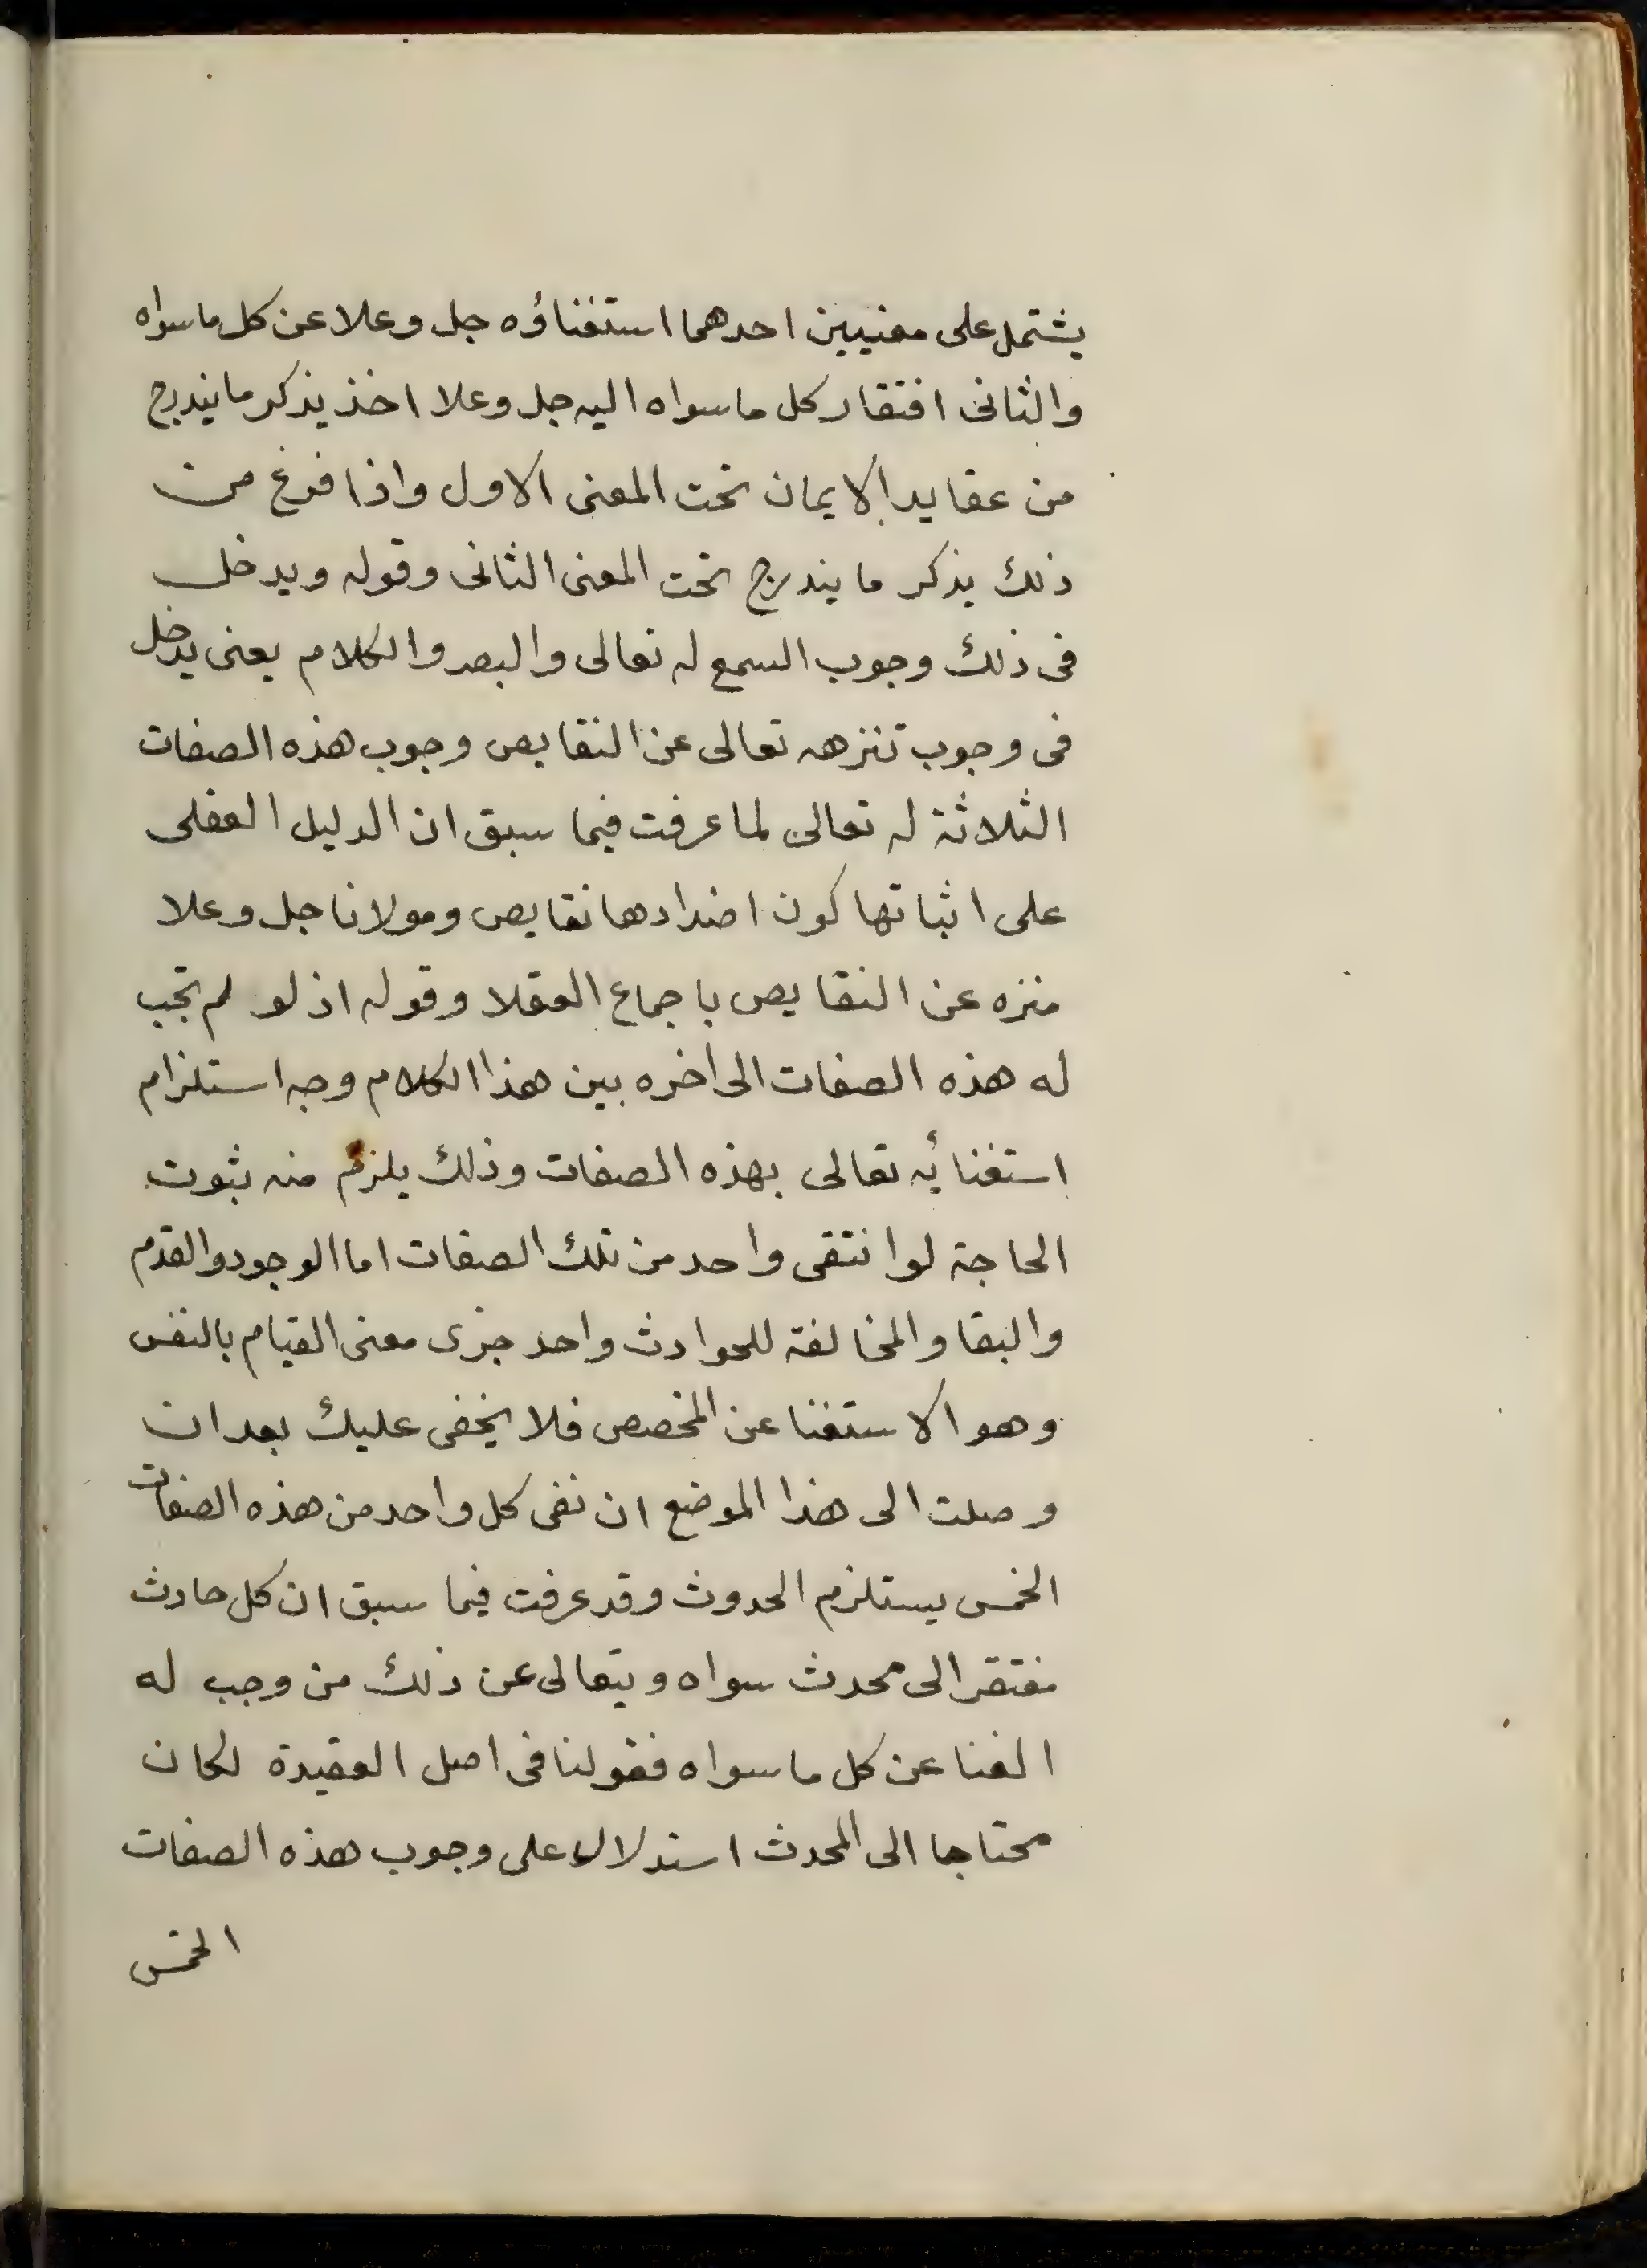 يشتمل على معنيين احدهما استغناؤه جل وعلا عن كل ماسواه
والثانى افتقار كل ماسواه اليه جل وعلا اخذ يذكر ما يندرج
من عقايد الايمان تحت المعنى الاول واذا فرغ من
ذلك يذكر ما يندرج تحت المعنى الثانى وقوله ويدخل
فى ذلك وجوب السمع له تعالى والبصر والكلام يعنى يدخل
فى وجوب تنزهه تعالى عن النقايص وجوب هذه الصفات
الثلاثة له تعالى لما عرفت فيما سبق ان الدليل العقلى
على اثباتها كون اضدادها نقايص ومولانا جل وعلا
منزه عن النقايص باجماع العقلا وقوله اذ لو لم تجب
له هذه الصفات الى أخره بين هذا الكلام وجه استلزام
استغنائه تعالى بهذه الصفات وذلك يلزم منه ثبوت
الحاجة لو انتفى واحد من تلك الصفات اما الوجود والقدم
والبقا والمخالفة للحوادث واحد جزى معنى القيام بالنفس
وهو الاستغنا عن المخصص فلا يخفى عليك بعد ان
وصلت الى هذا الموضع ان نفى كل واحد من هذه الصفات
الخمس يستلزم الحدوث وقد عرفت فيما سبق ان كل حادث
مفتقر الى محدث سواه ويتعالى عن ذلك من وجب له
الغنا عن كل ماسواه فقولنا فى اصل العقيدة لكان
محتاجا الى المحدث استدلال على وجوب هذه الصفات
الخمس